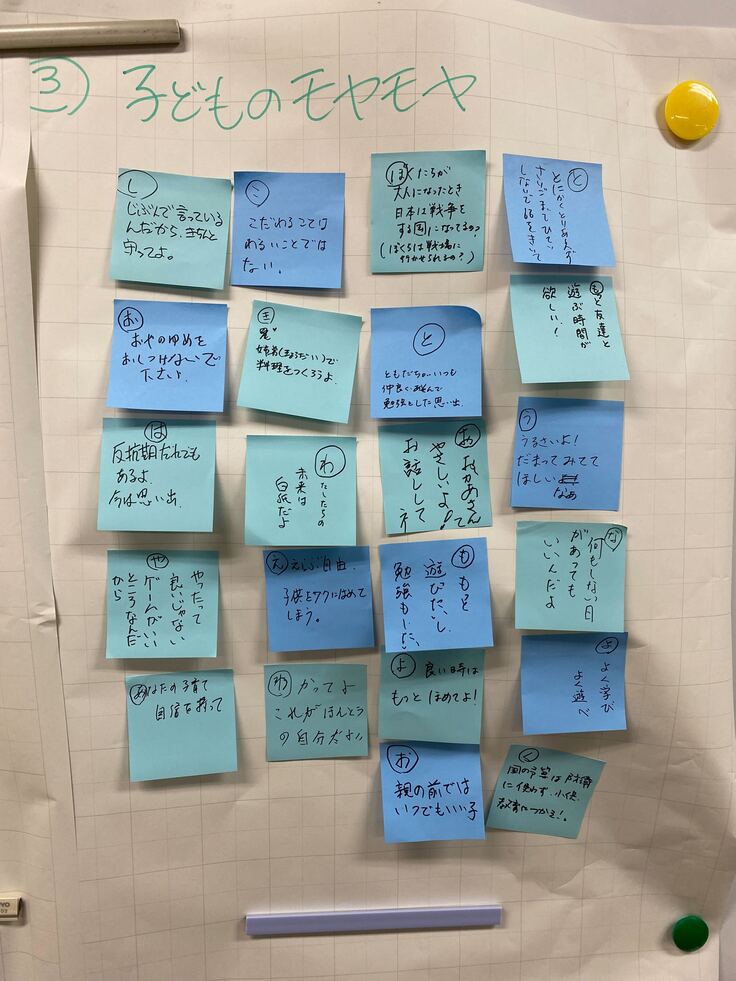 ③ 子どものモヤモヤ
し
じぶんで言っている
んだから、きちんと
守ってよ。
こ
こだわることは
わるいことでは
ない。
ぼくたちが
大人になったとき
日本は戦争を
する国になってるの？
(ぼくらは戦場に
行かせられるの？)
と
とにかくとりあえず
さいごまでひてい
しないで話をきいて
お
おやのゆめを
おしつけないで
下さいよ。
き
姉弟(きょうだい)で
料理をつくろうよ。
と
ともだちといつも
仲良くあそんで
勉強とした思い出。
もっと友達と
遊ぶ時間が
欲しい！
は
反抗期だれでも
あるよ
今は思い出。
わ
たしたちの
未来は
白紙だよ
お
おかあさん
やさしいよ！
お話しして
う
うるさいよ！
だまってみてて
ほしい
なぁ
や
やったって
良いじゃない
ゲームがいい
ところなんだ
から
え
えらぶ自由。
子供をワクにはめて
しまう。
も
もっと
遊びたいし
勉強もしたい
な
何もしない日
があっても
いいんだよ
あなたの子育て
自信を持って
わ
かってよ
これがほんとう
の自分だよ!!
よ
良い時は
もっとほめてよ！
よ
よく学び
よく遊べ
お
親の前では
いつでもいい子
く
国の予算は防衛
に使わず、小供、
教育につかえ！。